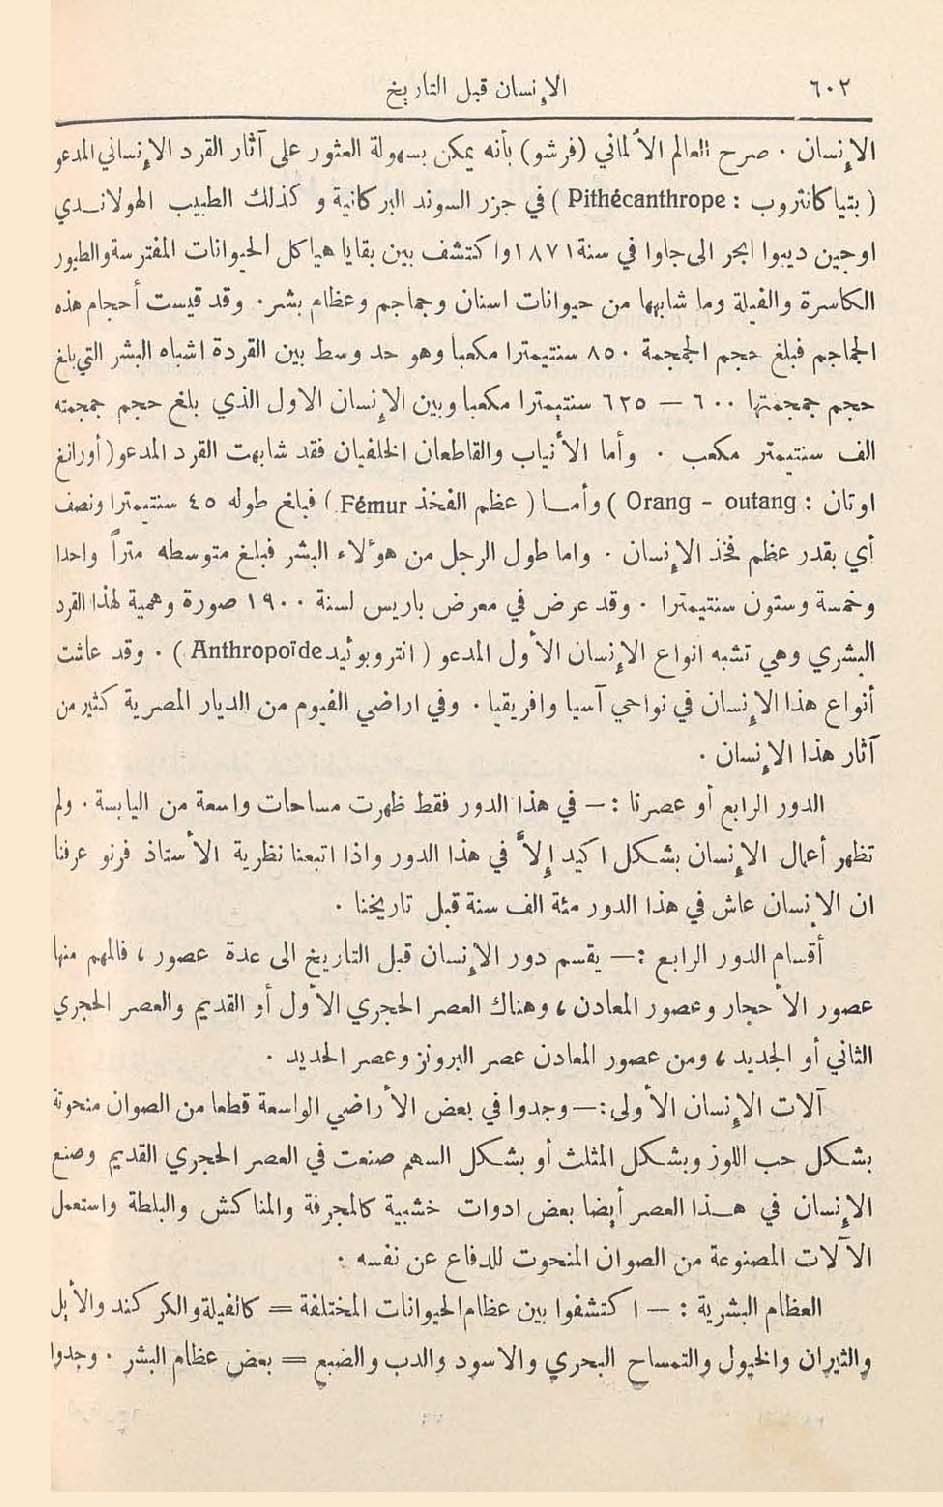 ٦٠٢
الإنسان قبل التاريخ
الإنسان . صرح العالم الألماني (فرشو) بأنه يمكن بسهولة العثور على آثار القرد الإنساني المدعو
( بتيا كانثروب : Pithécanthrope ) في جزر السوند البركانية و كذلك الطبيب الهولانـدي
اوجين ديبوا ابحر الى جاوا في سنة ١٨٧١ وا كتشف بين بقايا هياكل الحيوانات المفترسة والطيور
الكاسرة والفيلة وما شابهها من حيوانات اسنان وجماجم وعظام بشر . وقد قيست أحجام هذه
الجماجم فبلغ حجم الجمجمة ٨٥٠ سنتيمترا مكعبا وهو حد وسط بين القردة اشباه البشر التي بلغ
حجم جمجمتها ٦٠٠ — ٦٢٥ سنتيمترا مكعبا وبين الإنسان الاول الذي بلغ حجم جمجمته
الف سنتيمتر مكعب . وأما الأنياب والقاطعان الخلفيان فقد شابهت القرد المدعو ( أورانغ
اوتان : Orang - outang ) وأمـا ( عظم الفخذ Fémur ) فبلغ طوله ٤٥ سنتيمترا ونصف
أي بقدر عظم فخذ الإنسان . واما طول الرجل من هؤلاء البشر فبلغ متوسطه متراً واحدا
وخمسة وستون سنتيمترا . وقد عرض في معرض باريس لسنة ١٩٠٠ صورة وهمية لهذا القرد
البشري وهي تشبه انواع الإنسان الأول المدعو ( انتروبوئيد Anthropoïde ) . وقد عاشت
أنواع هذا الإنسان في نواحي آسيا وافريقيا . وفي اراضي الفيوم من الديار المصرية كثير من
آثار هذا الإنسان .
الدور الرابع أو عصرنا : — في هذا الدور فقط ظهرت مساحات واسعة من اليابسة . ولم
تظهر أعمال الإنسان بشكل اكيد إلاَّ في هذا الدور واذا اتبعنا نظرية الأستاذ فرنو عرفنا
ان الإنسان عاش في هذا الدور مئة الف سنة قبل تاريخنا .
أقسام الدور الرابع : — يقسم دور الإنسان قبل التاريخ الى عدة عصور ، فالمهم منها
عصور الأحجار وعصور المعادن ، وهناك العصر الحجري الأول أو القديم والعصر الحجري
الثاني أو الجديد ، ومن عصور المعادن عصر البرونز وعصر الحديد .
آلات الإنسان الأولى : — وجدوا في بعض الأراضي الواسعة قطعا من الصوان منحوتة
بشكل حب اللوز وبشكل المثلث أو بشكل السهم صنعت في العصر الحجري القديم وصنع
الإنسان في هـذا العصر أيضا بعض ادوات خشبية كالمجرفة والمناكش والبلطة واستعمل
الآلات المصنوعة من الصوان المنحوت للدفاع عن نفسه .
العظام البشرية : — ا كتشفوا بين عظام الحيوانات المختلفة = كالفيلة والكركند والأيل
والثيران والخيول والتمساح البحري والاسود والدب والضبع = بعض عظام البشر . وجدوا